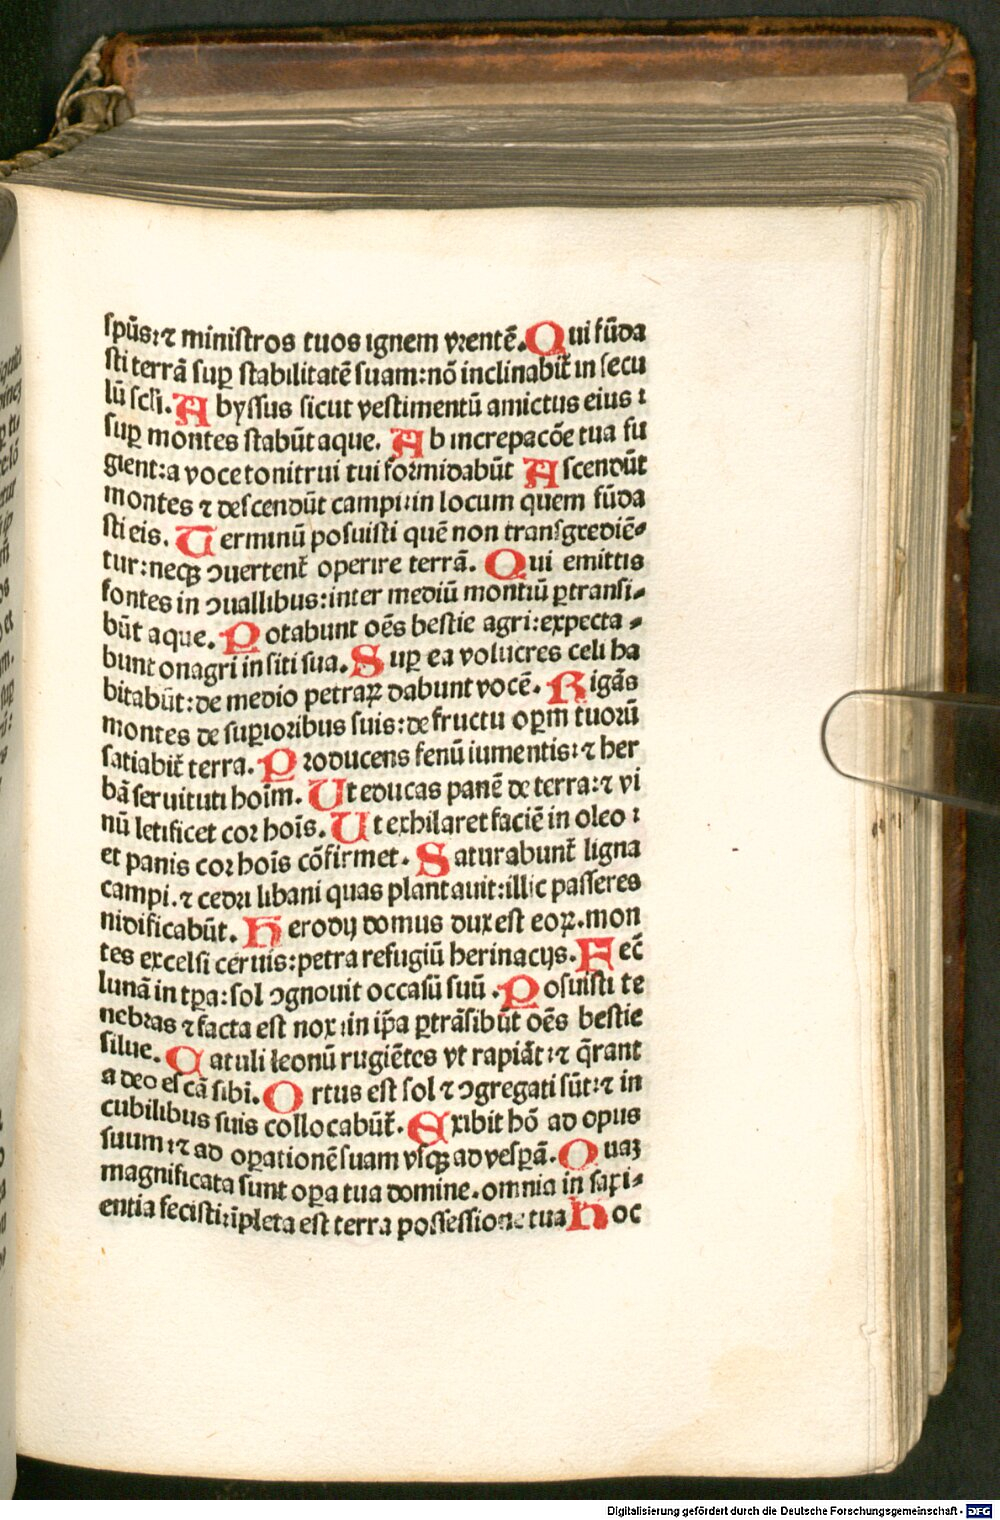 spūs:⁊ ministros tuos ignem vrentē. Qui fūda
sti terrā suꝑ stabilitatē suam:nō inclinabit̄ in secu
lū scl̄i. Abyssus sicut vestimentū amictus eius :
suꝑ montes stabūt aque. Ab increpacōe tua fu
gient:a voce tonitrui tui formidabūt Ascendūt
montes ⁊ descendūt campi:in locum quem fūda
sti eis. Terminū posuisti quē non transgrediē-
tur:neqꝫ ꝯuertent̄ operire terrā. Qui emittis
fontes in ꝯuallibus:inter mediū montiū ꝑtransi-
būt aque. Potabunt oēs bestie agri:expecta-
bunt onagri in siti sua. Suꝑ ea volucres celi ha
bitabūt:de medio petraꝝ dabunt vocē. Rigās
montes de suꝑioribus suis:de fructu oꝑm tuorū
satiabit̄ terra. Producens fenū iumentis:⁊ her
bā seruituti hoīm. Ut educas panē de terra:⁊ vi
nū letificet cor hoīs. Ut exhilaret faciē in oleo :
et panis cor hoīs cōfirmet. Saturabunt̄ ligna
campi.⁊ cedri libani quas plantauit:illic passeres
nidificabūt. Herodij domus dux est eoꝝ.mon
tes excelsi ceruis:petra refugiū herinacijs. Fec̄
lunā in tꝑa:sol ꝯgnouit occasū suū. Posuisti te
nebras ⁊ facta est nox:in ip̄a ꝑtrāsibūt oēs bestie
silue. Catuli leonū rugiētes vt rapiāt:⁊ q̄rant
a deo escā sibi. Ortus est sol ⁊ ꝯgregati sūt:⁊ in
cubilibus suis collocabūt̄. Exibit hō ad opus
suum:⁊ ad oꝑationē suam vsqꝫ ad vesꝑā. Quaꝫ
magnificata sunt oꝑa tua domine.omnia in sapi-
entia fecisti:īpleta est terra possessione tua Hoc
Digitalisierung gefördert durch die Deutsche Forschungsgemeinschaft - DFG